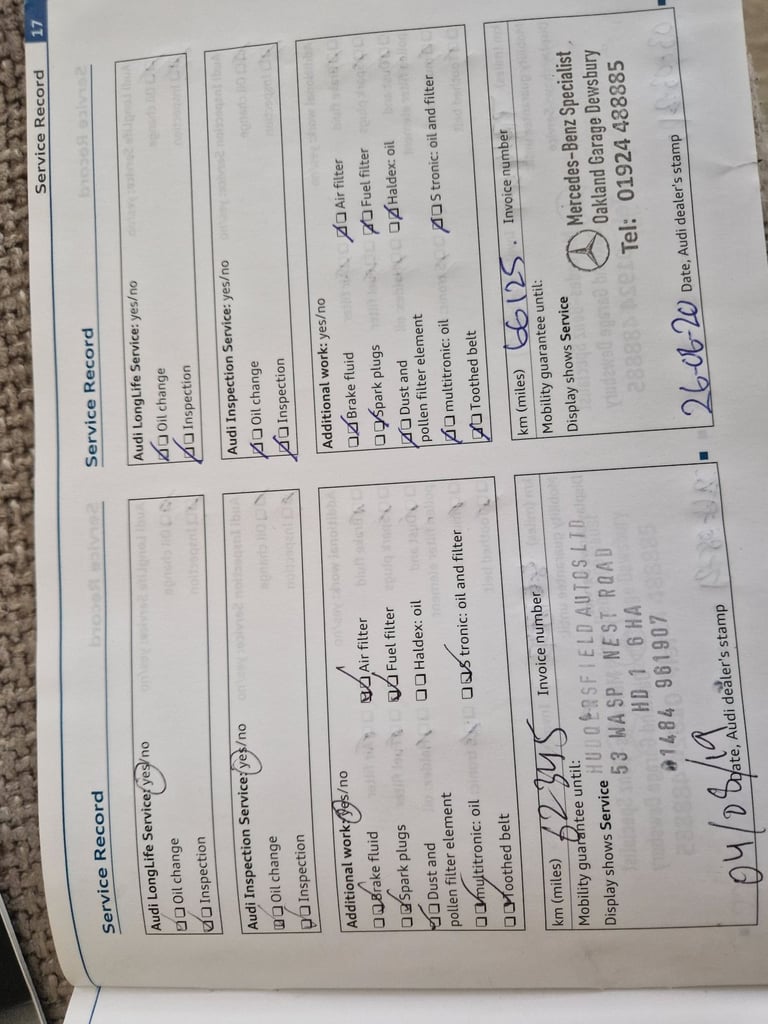 Service Record 17
Service Record
Audi LongLife Service: yes/no
Oil change
Inspection
Audi Inspection Service: yes/no
Oil change
Inspection
Additional work: yes/no
Brake fluid
Air filter
Spark plugs
Fuel filter
Dust and
pollen filter element
Haldex: oil
multitronic: oil
S tronic: oil and filter
Toothed belt
km (miles) 62345 Invoice number
Mobility guarantee until:
Display shows Service
HUDDERSFIELD AUTOS LTD
53 WASP NEST ROAD
HD 1 6 HA
01484 961907
04/08/19
Date, Audi dealer's stamp
Service Record
Audi LongLife Service: yes/no
Oil change
Inspection
Audi Inspection Service: yes/no
Oil change
Inspection
Additional work: yes/no
Brake fluid
Air filter
Spark plugs
Fuel filter
Dust and
pollen filter element
Haldex: oil
multitronic: oil
S tronic: oil and filter
Toothed belt
km (miles) 66125. Invoice number
Mobility guarantee until:
Display shows Service
Mercedes-Benz Specialist
Oakland Garage Dewsbury
Tel: 01924 488885
26-08-20 Date, Audi dealer's stamp